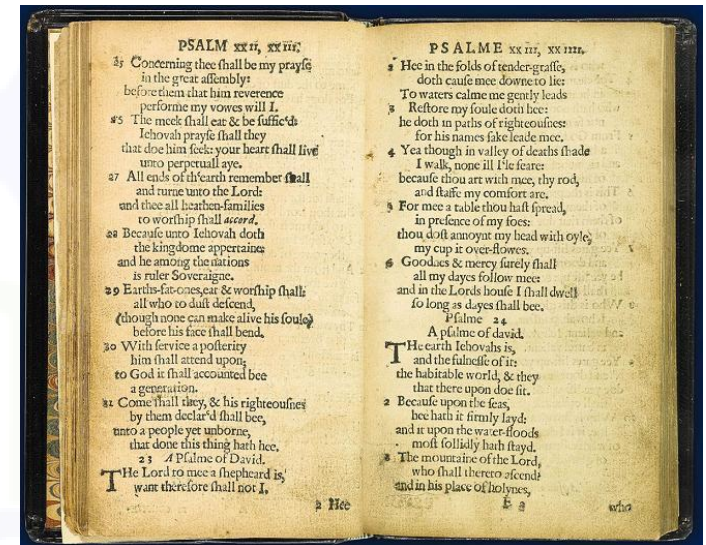 PSALM xxii, xxiii.
25 Concerning thee shall be my prayse
in the great assembly:
before them that him reverence
performe my vowes will I.
25 The meek shall eat & be suffic'd:
Iehovah prayse shall they
that doe him seek: your heart shall live
unto perpetuall aye.
27 All ends of th'earth remember shall
and turne unto the Lord:
and thee all heathen-families
to worship shall accord,
28 Because unto Iehovah doth
the kingdome appertaine:
and he among the nations
is ruler Soveraigne.
29 Earths-fat-ones, eat & worship shall:
all who to dust descend,
(though none can make alive his soule)
before his face shall bend.
30 With service a posterity
him shall attend upon;
to God it shall accounted bee
a generation.
31 Come shall they, & his righteousnes
by them declar'd shall bee,
unto a people yet unborne,
that done this thing hath hee.
23 A Psalme of David.
THe Lord to mee a shepheard is,
want therefore shall not I.
2 Hee
PSALME xxiii, xxiiii.
2 Hee in the folds of tender-grasse,
doth cause mee downe to lie:
To waters calme me gently leads
3 Restore my soule doth hee:
he doth in paths of righteousnes:
for his names sake leade mee.
4 Yea though in valley of deaths shade
I walk, none ill I'le feare:
because thou art with mee, thy rod,
and staffe my comfort are.
5 For mee a table thou hast spread,
in presence of my foes:
thou dost annoynt my head with oyle,
my cup it over-flowes.
6 Goodnes & mercy surely shall
all my dayes follow mee:
and in the Lords house I shall dwell
so long as dayes shall bee.
Psalme 24
A psalme of david.
THe earth Iehovahs is,
and the fulnesse of it:
the habitable world, & they
that there upon doe sit.
2 Because upon the seas,
hee hath it firmly layd:
and it upon the water-floods
most sollidly hath stayd.
3 The mountaine of the Lord,
who shall thereto ascend?
and in his place of holynes,
who